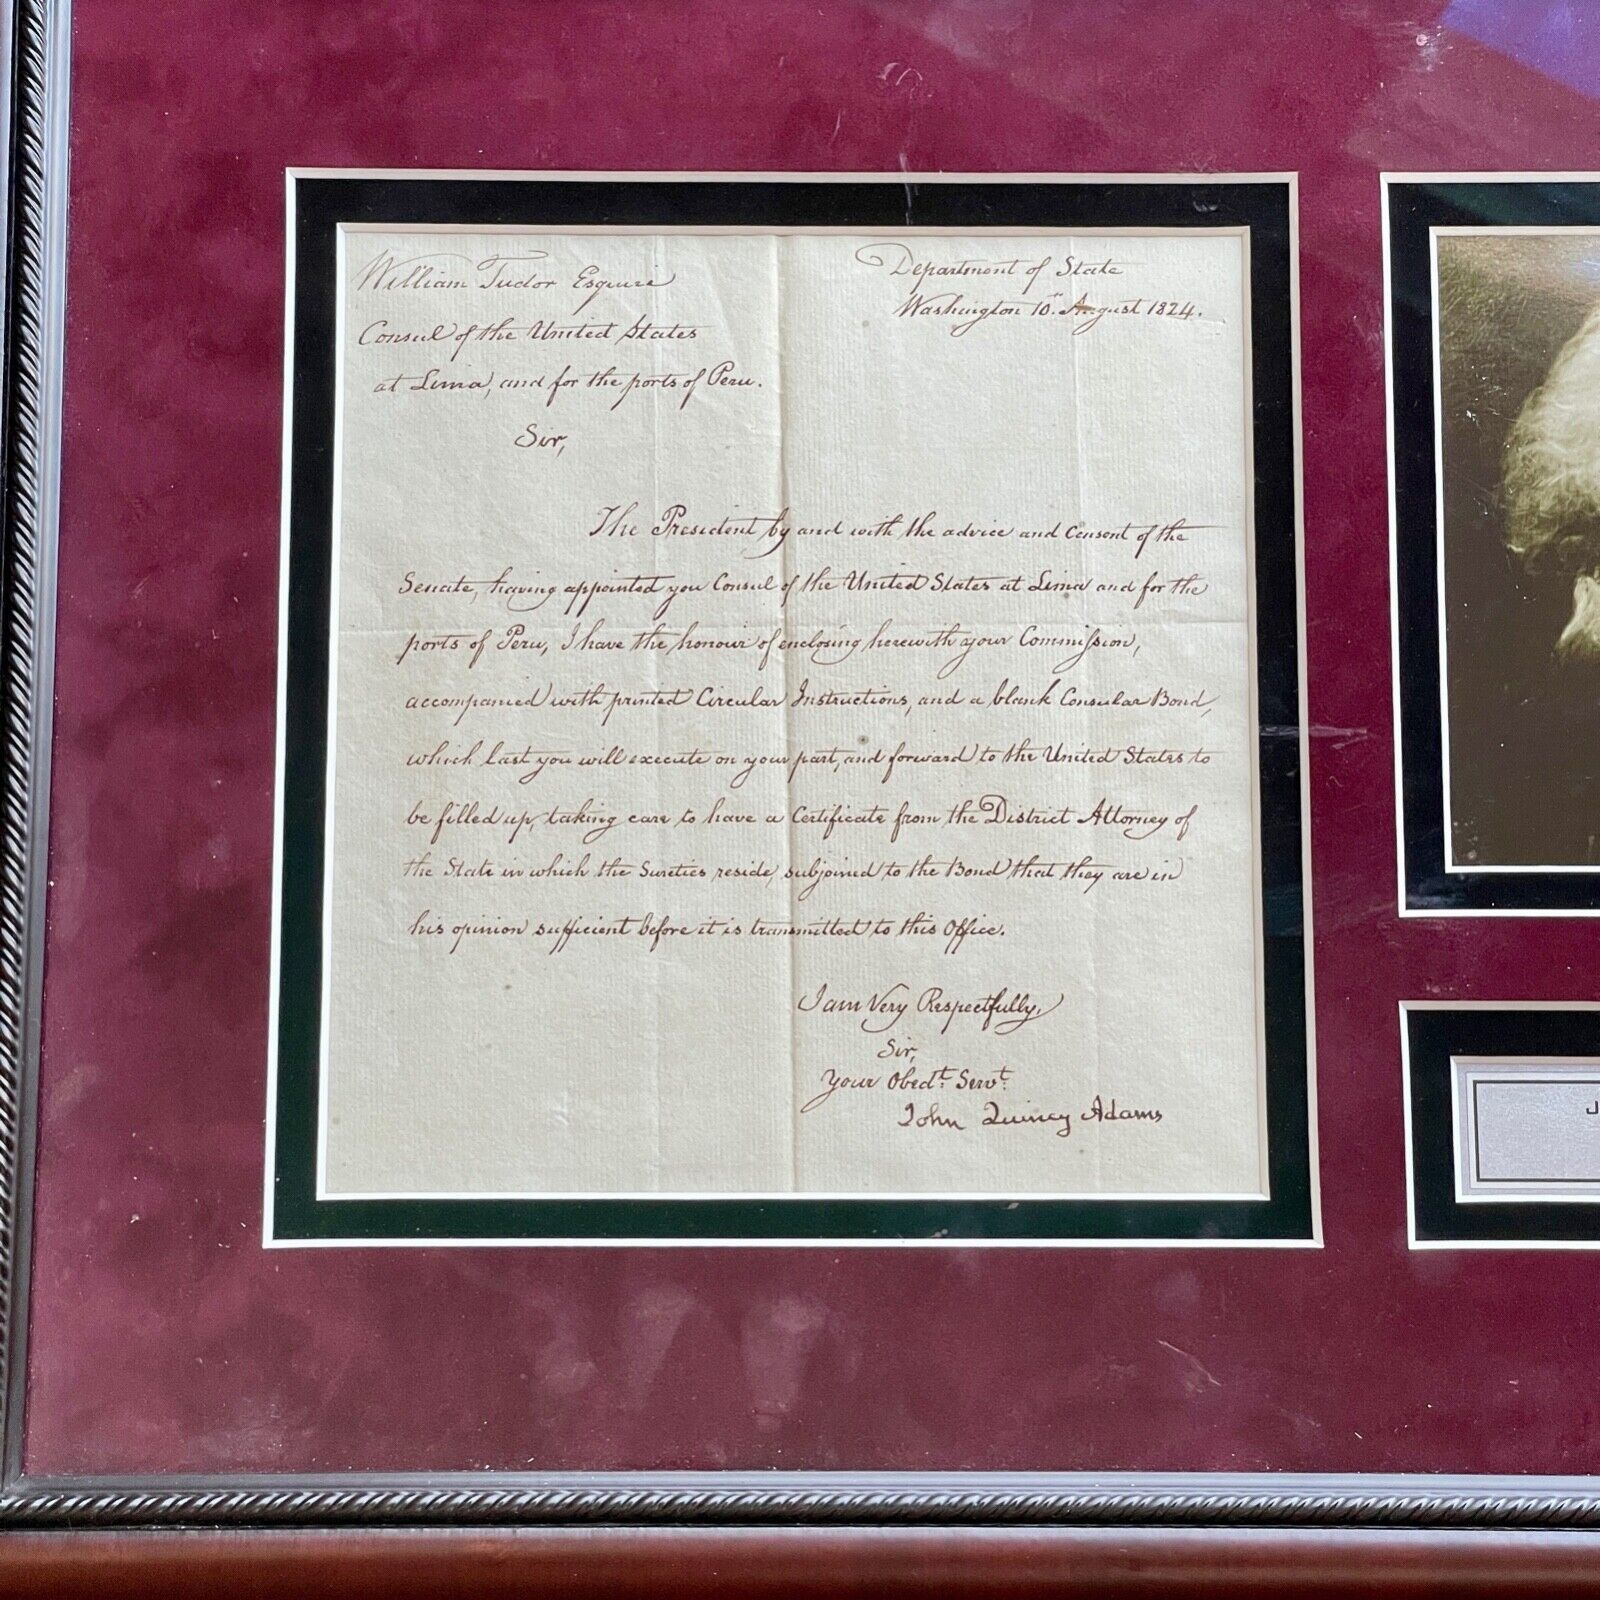 William Tudor Esquire
Consul of the United States
at Lima, and for the ports of Peru.
Department of State
Washington 10th August 1824.
Sir,
The President by and with the advice and Consent of the
Senate, having appointed you Consul of the United States at Lima and for the
ports of Peru, I have the honour of enclosing herewith your Commission,
accompanied with printed Circular Instructions, and a blank Consular Bond,
which last you will execute on your part, and forward to the United States to
be filled up, taking care to have a Certificate from the District Attorney of
the State in which the Sureties reside, subjoined to the Bond that they are in
his opinion sufficient before it is transmitted to this Office.
I am Very Respectfully,
Sir,
Your Obedt. Servt.
John Quincy Adams
J